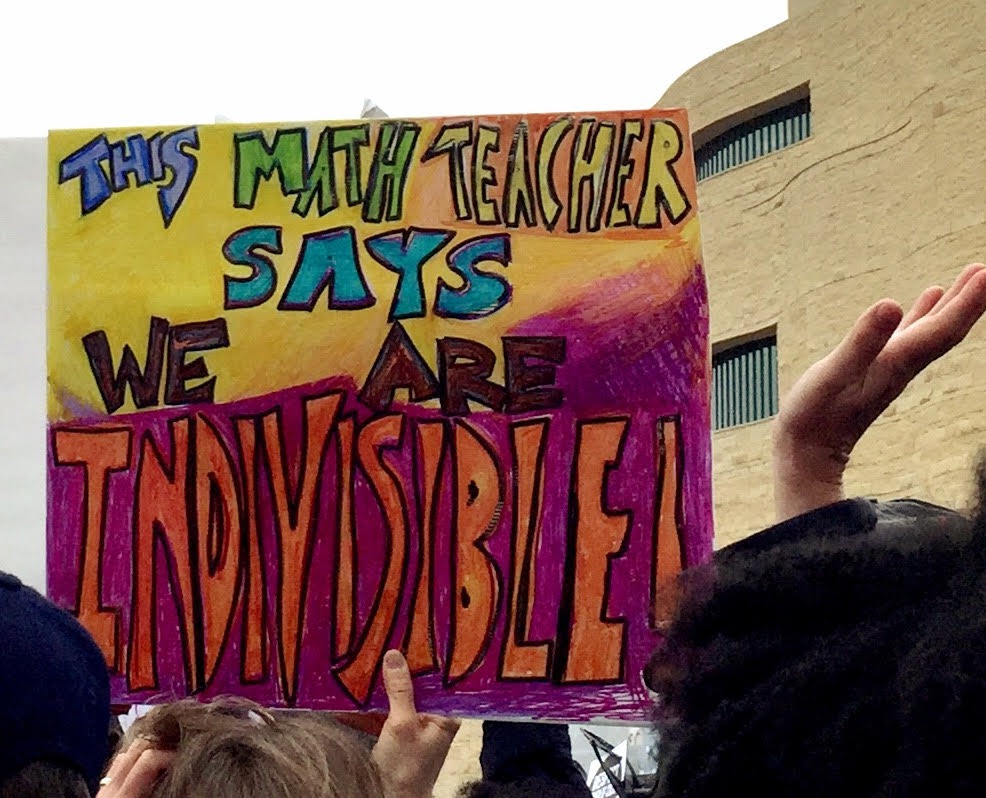 THIS MATH TEACHER
SAYS
WE ARE
INDIVISIBLE!